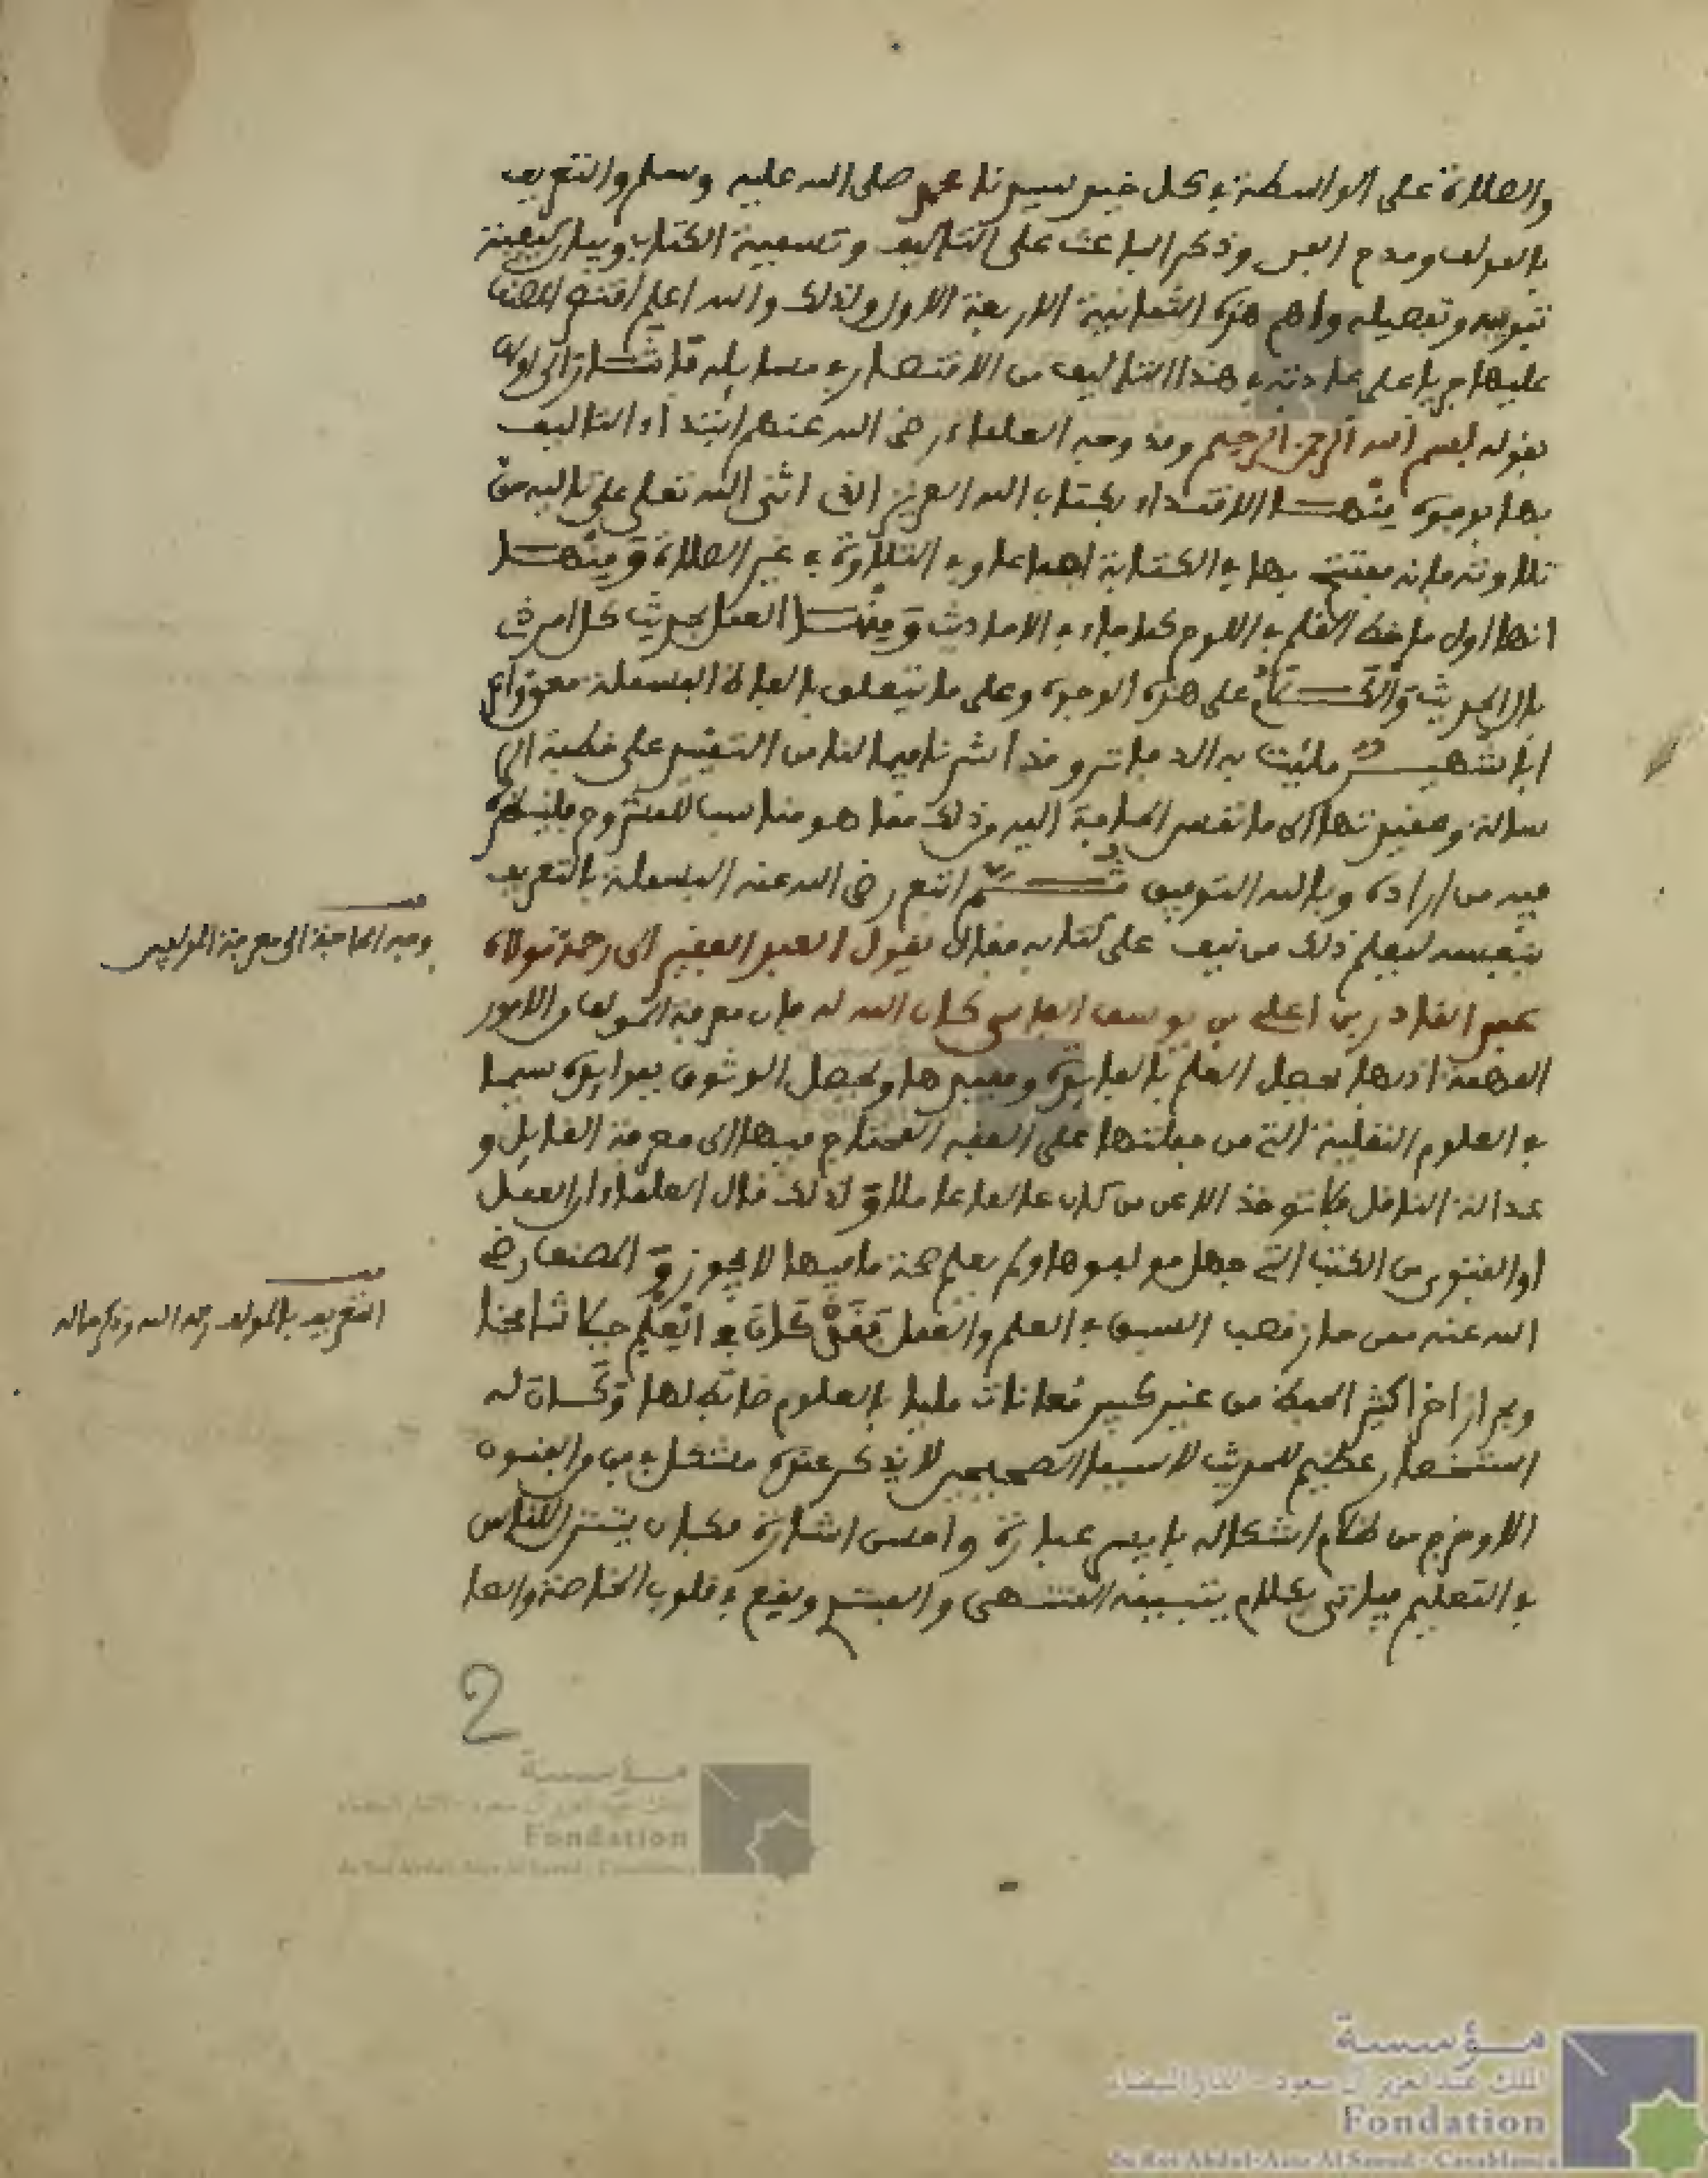 والصلاة على الواسطة في كل خير سيدنا محمد صلى الله عليه وسلم والتعريف
بالمولف ومدح الفن وذكر الباعث على التاليف وتسمية الكتاب وبيان كيفية
تبويبه وتفصيله واهم هذه الثمانية الاربعة الاول ولذلك والله اعلم اقتصر المصنف
عليها جريا على عادته في هذا التاليف من الاقتصار في مسايله فاشار الى اولها
بقوله بسم الله الرحمن الرحيم وقد وجه العلماء رضي الله عنهم ابتداء التاليف
بها بوجوه منها الاقتداء بكتاب الله العزيز الذي اثنى الله تعلى على تاليه حق
تلاوته فانه مفتتح بها في الكتابة اجماعا وفي التلاوة في غير الصلاة ومنها
انها اول ما خط القلم في اللوح كما جاء في الاحاديث ومنها العمل بحديث كل امر ذي
بال الحديث والكلام على هذه الوجوه وعلى ما يتعلق بالفاظ البسملة
شهير ملئت به الدفاتر وقد اشرنا فيما لنا من التقييد على خطبة الر
سالة وعقيدتها الى ما تمس الحاجة اليه من ذلك مما هو مناسب للمشروح فلينظر
فيه من اراده وبالله التوفيق ثم اتبع رضي الله عنه البسملة بالتعريف
بنفسه ليعلم ذلك من يقف على كتابه فقال يقول العبد الفقير الى رحمة مولاه
عبد القادر بن اعلي بن يوسف الفاسي كان الله له فان معرفة المولف من الامور
المهمة اذ بها يحصل العلم بالفايدة ومفيدها ويحصل الوثوق بفوايده سيما
في العلوم النقلية التي من جملتها علم الفقه المحتاج فيها الى معرفة القايل و
عدالة الناقل فلا تؤخذ الا عن من كان عالما عاملا ولذلك قال العلماء ان العمل
او الفتوى من الكتب التي جهل مولفوها ولم يعلم صحة ما فيها لا يجوز والمصنف رضي
الله عنه ممن حاز قصب السبق في العلم والعمل فقد كان في العلم جبلا شامخا
وبحرا زاخرا اكثر الحفظ من غير كبير معانات مليا بالعلوم ضابطا لها وكان له
استحضار عظيم للحديث لا سيما الصحيحين لا يذكر عنده مشكل في فن من الفنون
الا وخرج من ظلام اشكاله بايسر عبارة واحسن اشارة فكان يتنزل للناس
في التعليم فياتي بكلام يتبينه المنتهي والمبتدي ويقع في قلوب الخاصة والعا
وجه الحاجة الى معرفة المولفين
التعريف بالمولف رحمه الله وذكر حاله
2
مؤسسة
الملك عبد العزيز آل سعود - الدار البيضاء
Fondation
du Roi Abdul-Aziz Al Saoud - Casablanca
مؤسسة
الملك عبد العزيز آل سعود - الدار البيضاء
Fondation
du Roi Abdul-Aziz Al Saoud - Casablanca